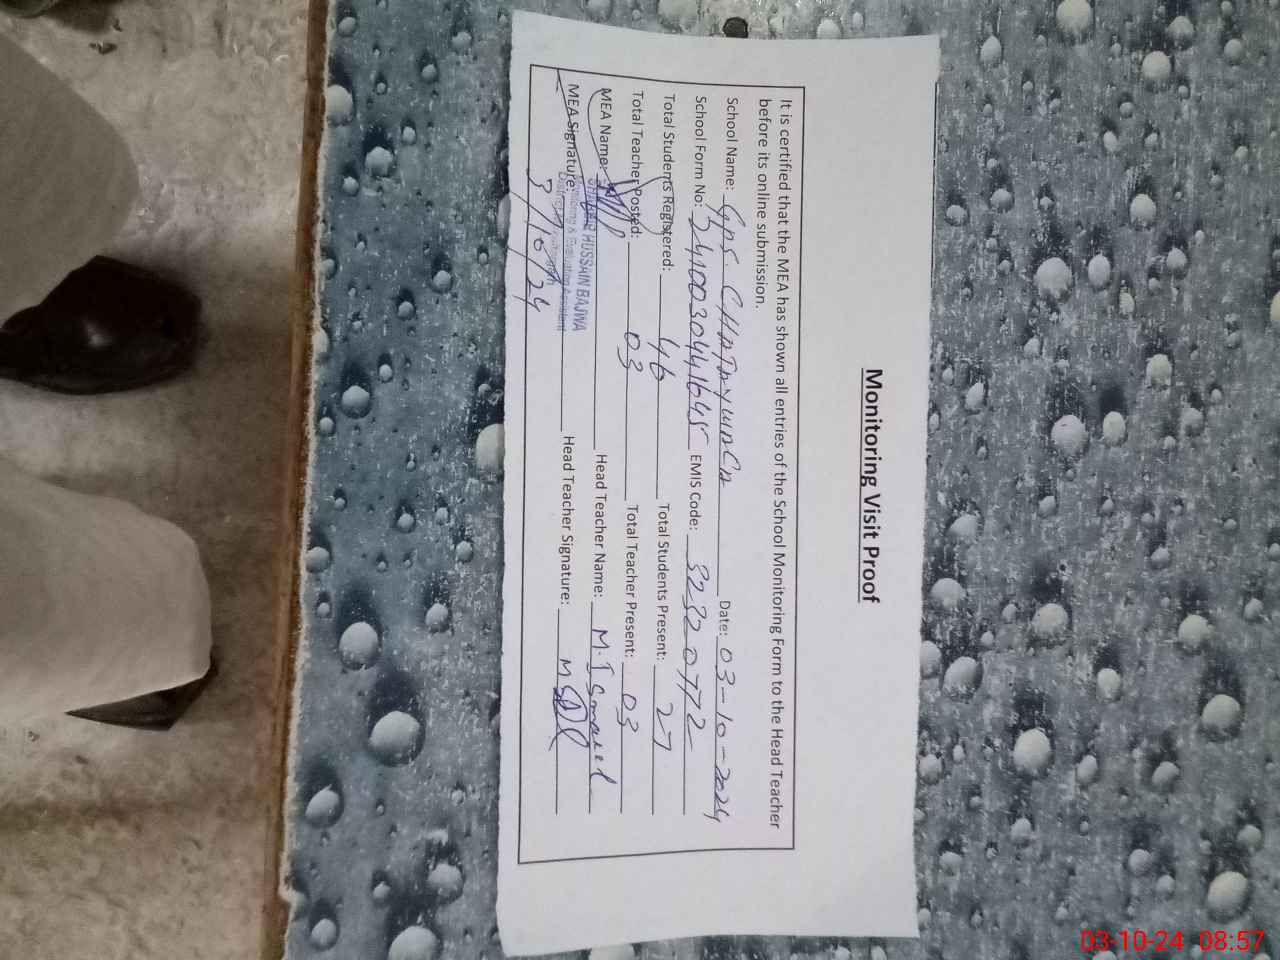 Monitoring Visit Proof
It is certified that the MEA has shown all entries of the School Monitoring Form to the Head Teacher
before its online submission.
School Name: GPS Date: 03-10-2024
School Form No: EMIS Code: 32320772
Total Students Registered: 46 Total Students Present: 27
Total Teacher Posted: 03 Total Teacher Present: 03
MEA Name: Head Teacher Name: M. Ismaeel
SHABBIR HUSSAIN BAJWA
Monitoring & Evaluation Assistant
MEA Signature: Head Teacher Signature:
3/10/24
03-10-24 08:57